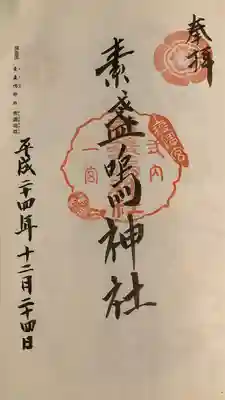 奉拝
素盞嗚神社
式内
一宮
平成二十四年十二月二十四日